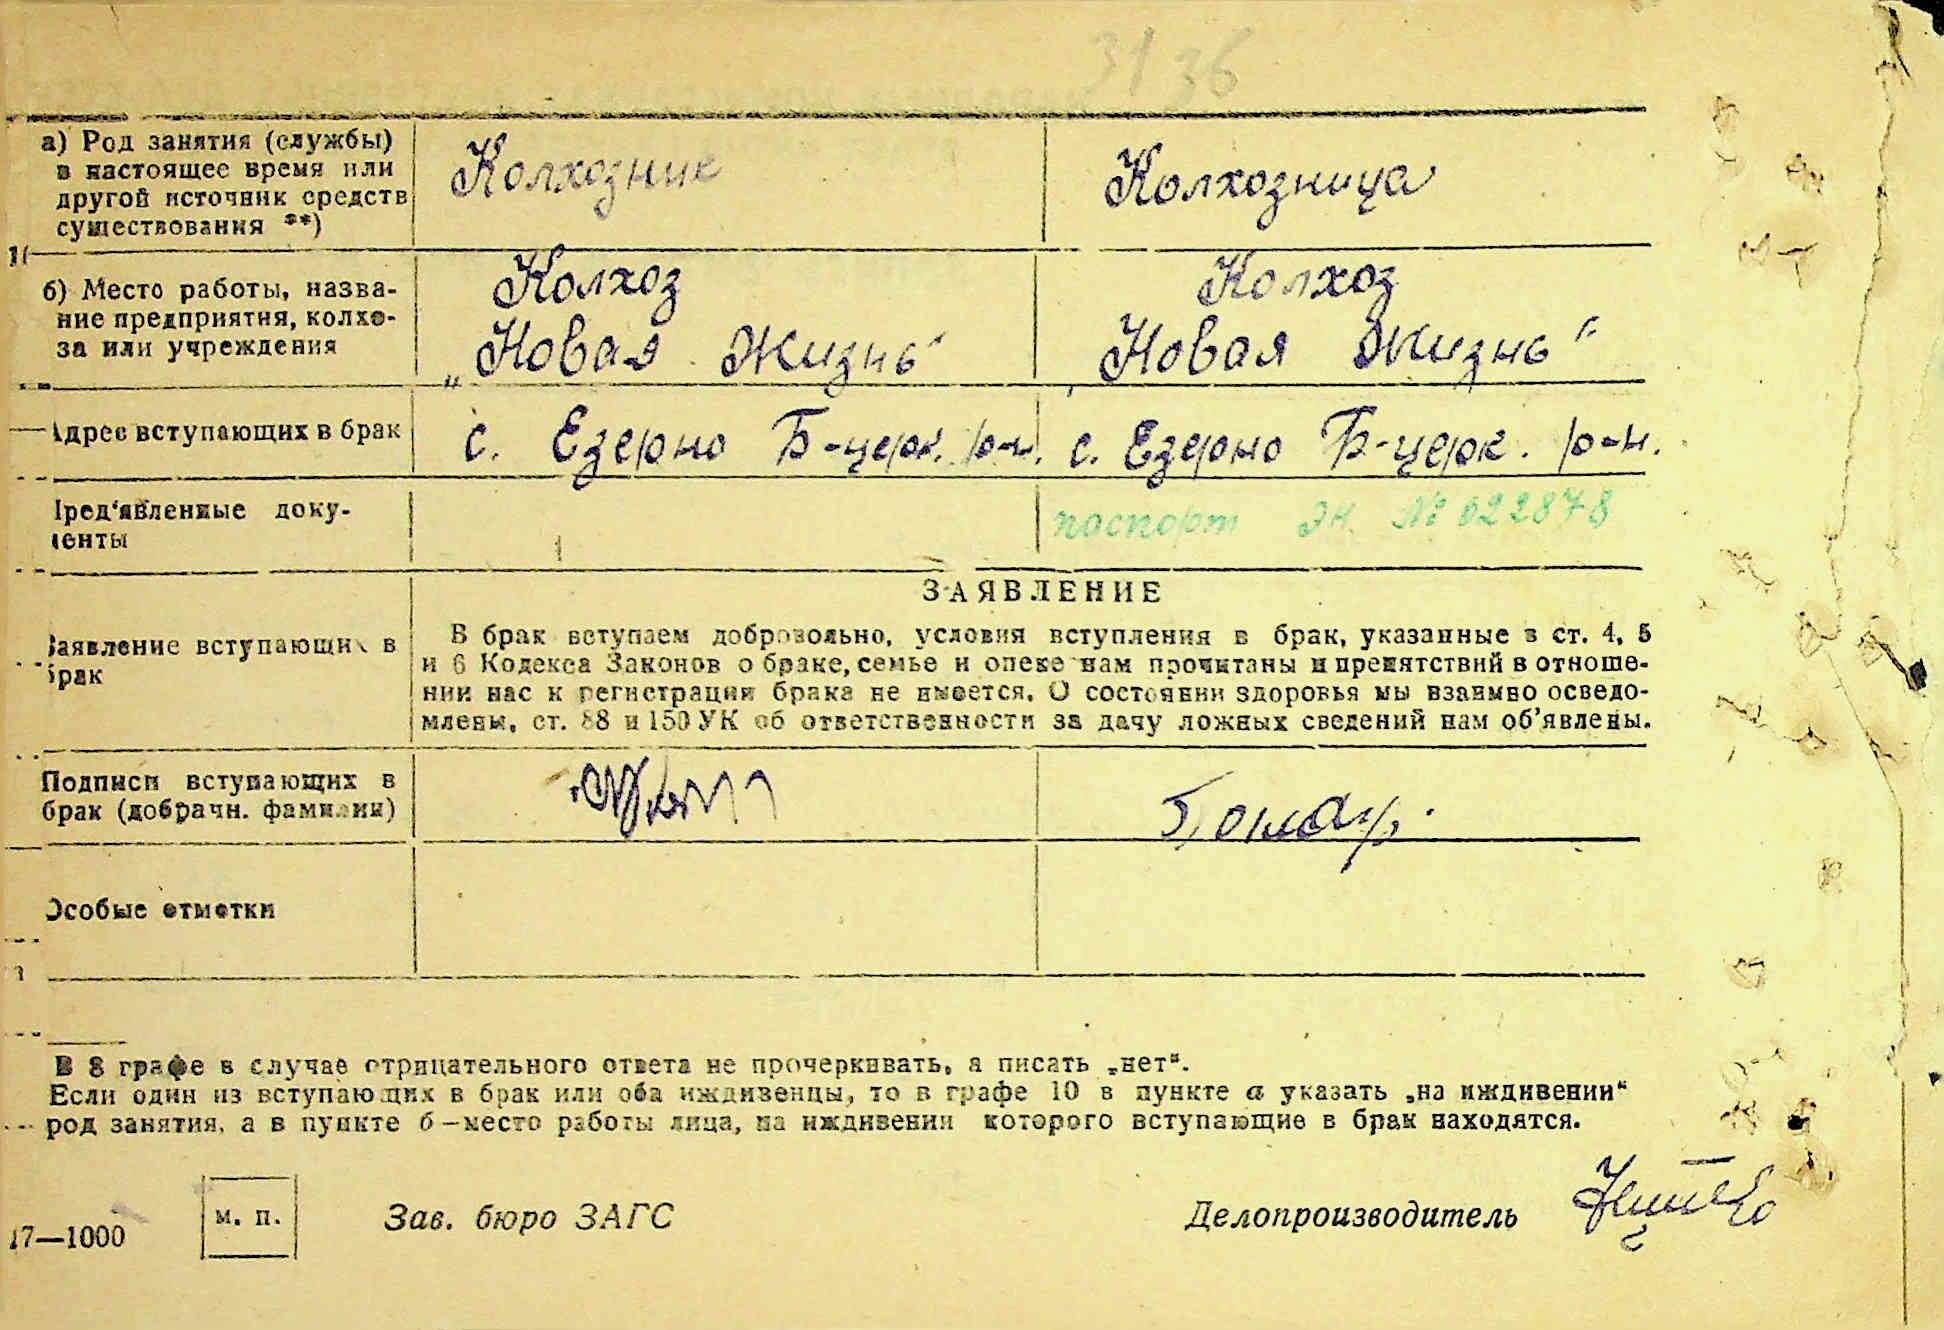 3136
а) Род занятия (службы)
в настоящее время или
другой источник средств
существования **)
Колхозник
Колхозница
б) Место работы, назва-
ние предприятия, колхо-
за или учреждения
Колхоз
„Новая Жизнь“
Колхоз
„Новая Жизнь“
Адрес вступающих в брак
с. Езерно Б-церк. р-н.
с. Езерно Б-церк. р-н.
Пред'явленные доку-
менты
паспорт Эн. № 622878
ЗАЯВЛЕНИЕ
Заявление вступающих в
брак
В брак вступаем добровольно, условия вступления в брак, указанные в ст. 4, 5
и 6 Кодекса Законов о браке, семье и опеке нам прочитаны и препятствий в отноше-
нии нас к регистрации брака не имеется. О состоянии здоровья мы взаимно осведо-
млены, ст. 88 и 150 УК об ответственности за дачу ложных сведений нам об'явлены.
Подписи вступающих в
брак (добрачн. фамилии)
Особые отметки
В 8 графе в случае отрицательного ответа не прочеркивать, а писать „нет“.
Если один из вступающих в брак или оба иждивенцы, то в графе 10 в пункте а указать „на иждивении“
род занятия, а в пункте б—место работы лица, на иждивении которого вступающие в брак находятся.
17—1000
м. п.
Зав. бюро ЗАГС
Делопроизводитель